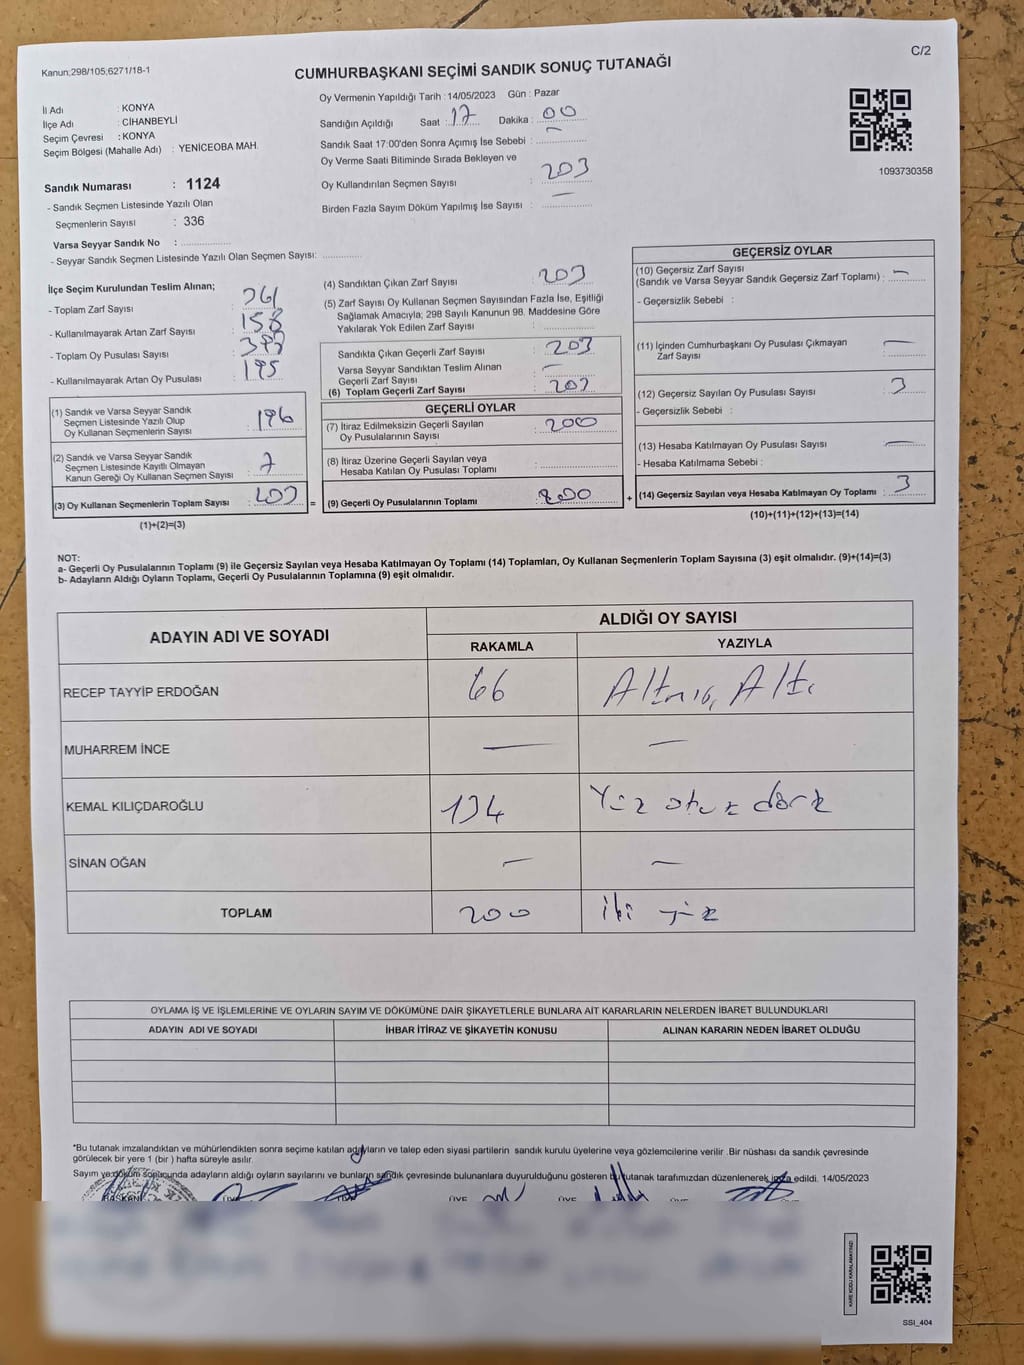 Kanun;298/105;6271/18-1
C/2
CUMHURBAŞKANI SEÇİMİ SANDIK SONUÇ TUTANAĞI
İl Adı : KONYA
İlçe Adı : CİHANBEYLİ
Seçim Çevresi : KONYA
Seçim Bölgesi (Mahalle Adı) : YENİCEOBA MAH.
Sandık Numarası : 1124
- Sandık Seçmen Listesinde Yazılı Olan
Seçmenlerin Sayısı : 336
Varsa Seyyar Sandık No :
- Seyyar Sandık Seçmen Listesinde Yazılı Olan Seçmen Sayısı:
Oy Vermenin Yapıldığı Tarih : 14/05/2023 Gün : Pazar
Sandığın Açıldığı Saat : 17 Dakika : 00
Sandık Saat 17:00'den Sonra Açımış İse Sebebi : —
Oy Verme Saati Bitiminde Sırada Bekleyen ve
Oy Kullandırılan Seçmen Sayısı : 203
Birden Fazla Sayım Döküm Yapılmış İse Sayısı : —
1093730358
İlçe Seçim Kurulundan Teslim Alınan;
- Toplam Zarf Sayısı : 361
- Kullanılmayarak Artan Zarf Sayısı : 158
- Toplam Oy Pusulası Sayısı :
- Kullanılmayarak Artan Oy Pusulası : 195
(1) Sandık ve Varsa Seyyar Sandık
Seçmen Listesinde Yazılı Olup
Oy Kullanan Seçmenlerin Sayısı : 196
(2) Sandık ve Varsa Seyyar Sandık
Seçmen Listesinde Kayıtlı Olmayan
Kanun Gereği Oy Kullanan Seçmen Sayısı : 7
(3) Oy Kullanan Seçmenlerin Toplam Sayısı : 203 =
(1)+(2)=(3)
(4) Sandıktan Çıkan Zarf Sayısı : 203
(5) Zarf Sayısı Oy Kullanan Seçmen Sayısından Fazla İse, Eşitliği
Sağlamak Amacıyla; 298 Sayılı Kanunun 98. Maddesine Göre
Yakılarak Yok Edilen Zarf Sayısı :
Sandıkta Çıkan Geçerli Zarf Sayısı : 203
Varsa Seyyar Sandıktan Teslim Alınan
Geçerli Zarf Sayısı : —
(6) Toplam Geçerli Zarf Sayısı : 203
GEÇERLİ OYLAR
(7) İtiraz Edilmeksizin Geçerli Sayılan
Oy Pusulalarının Sayısı : 200
(8) İtiraz Üzerine Geçerli Sayılan veya
Hesaba Katılan Oy Pusulası Toplamı :
(9) Geçerli Oy Pusulalarının Toplamı : 200 +
GEÇERSİZ OYLAR
(10) Geçersiz Zarf Sayısı
(Sandık ve Varsa Seyyar Sandık Geçersiz Zarf Toplamı) : —
- Geçersizlik Sebebi :
(11) İçinden Cumhurbaşkanı Oy Pusulası Çıkmayan
Zarf Sayısı : —
(12) Geçersiz Sayılan Oy Pusulası Sayısı : 3
- Geçersizlik Sebebi :
(13) Hesaba Katılmayan Oy Pusulası Sayısı : —
- Hesaba Katılmama Sebebi :
(14) Geçersiz Sayılan veya Hesaba Katılmayan Oy Toplamı : 3
(10)+(11)+(12)+(13)=(14)
NOT:
a- Geçerli Oy Pusulalarının Toplamı (9) ile Geçersiz Sayılan veya Hesaba Katılmayan Oy Toplamı (14) Toplamları, Oy Kullanan Seçmenlerin Toplam Sayısına (3) eşit olmalıdır. (9)+(14)=(3)
b- Adayların Aldığı Oyların Toplamı, Geçerli Oy Pusulalarının Toplamına (9) eşit olmalıdır.
ADAYIN ADI VE SOYADI ALDIĞI OY SAYISI
RAKAMLA YAZIYLA
RECEP TAYYİP ERDOĞAN 66 Altmış Altı
MUHARREM İNCE — —
KEMAL KILIÇDAROĞLU 134 Yüz otuz dört
SİNAN OĞAN — —
TOPLAM 200 iki yüz
OYLAMA İŞ VE İŞLEMLERİNE VE OYLARIN SAYIM VE DÖKÜMÜNE DAİR ŞİKAYETLERLE BUNLARA AİT KARARLARIN NELERDEN İBARET BULUNDUKLARI
ADAYIN ADI VE SOYADI İHBAR İTİRAZ VE ŞİKAYETİN KONUSU ALINAN KARARIN NEDEN İBARET OLDUĞU
*Bu tutanak imzalandıktan ve mühürlendikten sonra seçime katılan adayların ve talep eden siyasi partilerin sandık kurulu üyelerine veya gözlemcilerine verilir .Bir nüshası da sandık çevresinde
görülecek bir yere 1 (bir ) hafta süreyle asılır.
Sayım ve döküm sonucunda adayların aldığı oyların sayılarını ve bunların sandık çevresinde bulunanlara duyurulduğunu gösteren bu tutanak tarafımızdan düzenlenerek imza edildi. 14/05/2023
BAŞKAN ÜYE ÜYE ÜYE
KARE KODU KARALAMAYINIZ!
SSI_404